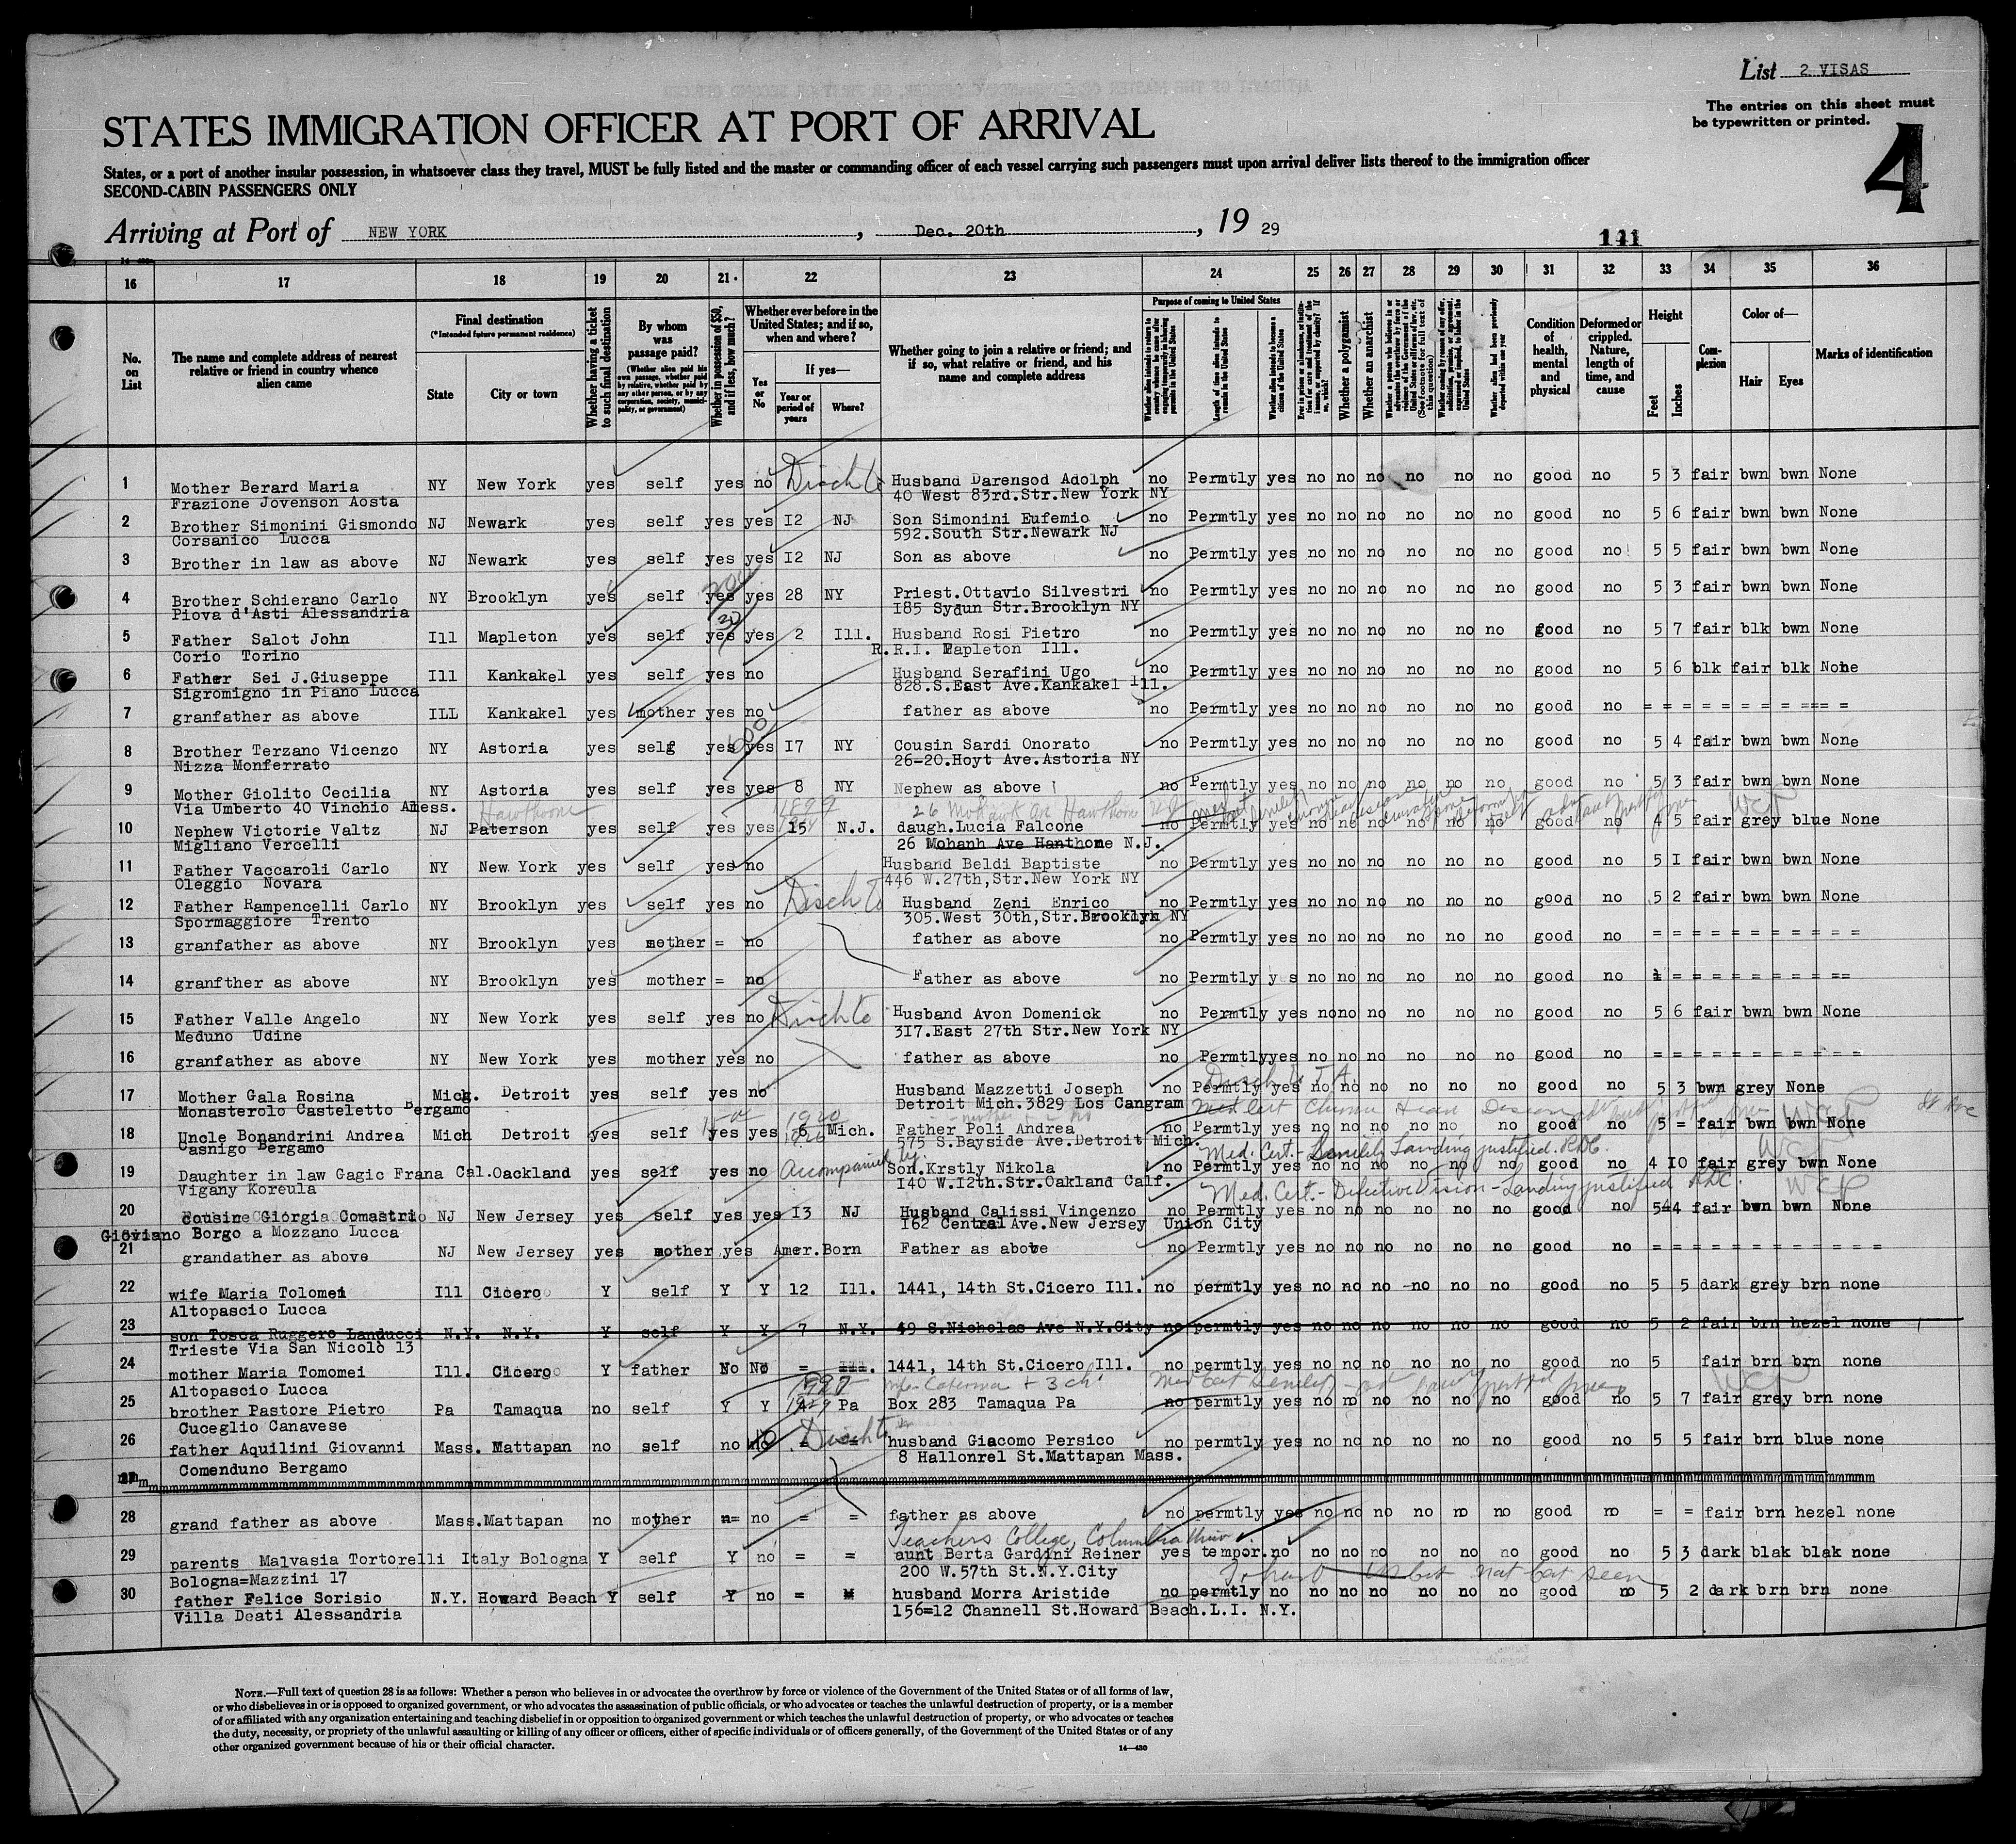 List 2 VISAS
The entries on this sheet must
be typewritten or printed.
4
STATES IMMIGRATION OFFICER AT PORT OF ARRIVAL
States, or a port of another insular possession, in whatsoever class they travel, MUST be fully listed and the master or commanding officer of each vessel carrying such passengers must upon arrival deliver lists thereof to the immigration officer
SECOND-CABIN PASSENGERS ONLY
Arriving at Port of NEW YORK, Dec. 20th, 19 29
16 17 18 19 20 21 22 23 24 25 26 27 28 29 30 31 32 33 34 35 36
No. on List
The name and complete address of nearest relative or friend in country whence alien came
Final destination
(*Intended future permanent residence)
State
City or town
Whether having a ticket to such final destination
By whom was passage paid?
(Whether alien paid his own passage, whether paid by relative, whether paid by any other person, or by any corporation, society, municipality, or government)
Whether in possession of $50, and if less, how much?
Whether ever before in the United States; and if so, when and where?
Yes or No
If yes—
Year or period of years
Where?
Whether going to join a relative or friend; and if so, what relative or friend, and his name and complete address
Purpose of coming to United States
Whether alien intends to return to country whence he came after engaging temporarily in laboring pursuits in the United States
Length of time alien intends to remain in the United States
Whether alien intends to become a citizen of the United States
Whether a polygamist
Whether an anarchist
Condition of health, mental and physical
Deformed or crippled. Nature, length of time, and cause
Height
Feet
Inches
Complexion
Color of—
Hair
Eyes
Marks of identification
1 Mother Berard Maria NY New York yes self yes no Disch to Husband Darensod Adolph no Permtly yes no no no no no no good no 5 3 fair bwn bwn None
Frazione Jovenson Aosta 40 West 83rd.Str.New York NY
2 Brother Simonini Gismondo NJ Newark yes self yes yes I2 NJ Son Simonini Eufemio no Permtly yes no no no no no no good no 5 6 fair bwn bwn None
Corsanico Lucca 592.South Str.Newark NJ
3 Brother in law as above NJ Newark yes self yes yes I2 NJ Son as above no Permtly yes no no no no no no good no 5 5 fair bwn bwn None
4 Brother Schierano Carlo NY Brooklyn yes self yes yes 28 NY Priest.Ottavio Silvestri no Permtly yes no no no no no no good no 5 3 fair bwn bwn None
Piova d'Asti Alessandria I85 Sydun Str.Brooklyn NY
5 Father Salot John Ill Mapleton yes self yes yes 2 Ill. Husband Rosi Pietro no Permtly yes no no no no no no good no 5 7 fair blk bwn None
Corio Torino R.R.I. Mapleton Ill.
6 Father Sei J.Giuseppe Ill Kankakel yes self yes no Husband Serafini Ugo no Permtly yes no no no no no no good no 5 6 blk fair blk None
Sigromigno in Piano Lucca 828.S.East Ave.Kankakel Ill.
7 granfather as above ILL Kankakel yes mother yes no father as above no Permtly yes no no no no no no good no = = = = = = = = = =
8 Brother Terzano Vicenzo NY Astoria yes self yes yes I7 NY Cousin Sardi Onorato no Permtly yes no no no no no no good no 5 4 fair bwn bwn None
Nizza Monferrato 26-20.Hoyt Ave.Astoria NY
9 Mother Giolito Cecilia NY Astoria yes self yes yes 8 NY Nephew as above no Permtly yes no no no no no no good no 5 3 fair bwn bwn None
Via Umberto 40 Vinchio Aless. Hawthorne 26 Mohawk Av Hawthorne NJ
10 Nephew Victorie Valtz NJ Paterson yes self yes yes 15 N.J. daugh.Lucia Falcone no Permtly yes no no no no no no good no 4 5 fair grey blue None
Migliano Vercelli 26 Mohanh Ave Hanthone N.J.
11 Father Vaccaroli Carlo NY New York yes self yes no Husband Beldi Baptiste no Permtly yes no no no no no no good no 5 I fair bwn bwn None
Oleggio Novara 446 W.27th,Str.New York NY
12 Father Rampencelli Carlo NY Brooklyn yes self yes no Disch to Husband Zeni Enrico no Permtly yes no no no no no no good no 5 2 fair bwn bwn None
Spormaggiore Trento 305.West 30th,Str.Brooklyn NY
13 granfather as above NY Brooklyn yes mother = no father as above no Permtly yes no no no no no no good no = = = = = = = = = =
14 granfther as above NY Brooklyn yes mother = no Father as above no Permtly y s no no no no no no good no = = = = = = = = = ==
15 Father Valle Angelo NY New York yes self yes no Disch to Husband Avon Domenick no Permtly yes no no no no no no good no 5 6 fair bwn bwn None
Meduno Udine 317.East 27th Str.New York NY
16 granfather as above NY New York yes mother yes no father as above no Permtly yes no no no no no no good no = = = = = = = = = =
17 Mother Gala Rosina Mich. Detroit yes self yes no Husband Mazzetti Joseph no Permtly yes no no no no no no good no 5 3 bwn grey None
Monasterolo Casteletto Bergamo Detroit Mich.3829 Los Cangram
18 Uncle Bonandrini Andrea Mich Detroit yes self yes yes 6 Mich. Father Poli Andrea no Permtly yes no no no no no no good no 5 = fair bwn bwn None
Casnigo Bergamo 575 S.Bayside Ave.Detroit Mich. Med. Cert.- Senility Landing justified. RDC.
19 Daughter in law Gagic Frana Cal. Oackland yes self yes no Accompanied by. Son.Krstly Nikola no Permtly yes no no no no no no good no 4 IO fair grey bwn None
Vigany Koreula I40 W.I2th.Str.Oakland Calf. Med. Cert.- Defective Vision - Landing justified RDC.
20 cousine Giorgia Comastri NJ New Jersey yes self yes yes I3 NJ Husband Calissi Vincenzo no Permtly yes no no no no no no good no 544 fair bwn bwn None
Gioviano Borgo a Mozzano Lucca I62 Central Ave.New Jersey Union City
21 grandather as above NJ New Jersey yes mother yes Amer.Born Father as above no Permtly yes no no no no no no good no = = = = = = = = = = =
22 wife Maria Tolomei Ill Cicero Y self Y Y 12 Ill. 1441, 14th St.Cicero Ill. no permtly yes no no no no no no good no 5 5 dark grey brn none
Altopascio Lucca
23 son Tosca Ruggero Landucci N.Y. N.Y. Y self Y Y 7 N.Y. 49 S.Nicholas Ave N.Y.City no permtly yes no no no no no no good no 5 2 fair brn hezel none
Trieste Via San Nicolò 13
24 mother Maria Tomomei Ill. Cicero Y father No No = Ill. 1441, 14th St.Cicero Ill. no permtly yes no no no no no no good no 5 fair brn brn none
Altopascio Lucca
25 brother Pastore Pietro Pa Tamaqua no self Y Y Pa Box 283 Tamaqua Pa no permtly yes no no no no no no good no 5 7 fair grey brn none
Cuceglio Canavese
26 father Aquilini Giovanni Mass. Mattapan no self no no = = Disch to husband Giacomo Persico no permtly yes no no no no no no good no 5 5 fair brn blue none
Comenduno Bergamo 8 Hallonrel St.Mattapan Mass.
27
28 grand father as above Mass. Mattapan no mother n= no = = father as above no permtly yes no no no no no no good no = = fair brn hezel none
Teachers College, Columbia Univ.
29 parents Malvasia Tortorelli Italy Bologna Y self Y no = = aunt Berta Gardini Reiner yes tempor. no no no no no no no good no 5 3 dark blak blak none
Bologna=Mazzini 17 200 W.57th St.N.Y.City
30 father Felice Sorisio N.Y. Howard Beach Y self Y no = husband Morra Aristide no permtly no no no no no no no good no 5 2 dark brn brn none
Villa Deati Alessandria 156=12 Channell St.Howard Beach.L.I. N.Y.
NOTE.—Full text of question 28 is as follows: Whether a person who believes in or advocates the overthrow by force or violence of the Government of the United States or of all forms of law,
or who disbelieves in or is opposed to organized government, or who advocates the assassination of public officials, or who advocates or teaches the unlawful destruction of property, or is a member
of or affiliated with any organization entertaining and teaching disbelief in or opposition to organized government or which teaches the unlawful destruction of property, or who advocates or teaches
the duty, necessity, or propriety of the unlawful assaulting or killing of any officer or officers, either of specific individuals or of officers generally, of the Government of the United States or of any
other organized government because of his or their official character.
14—430